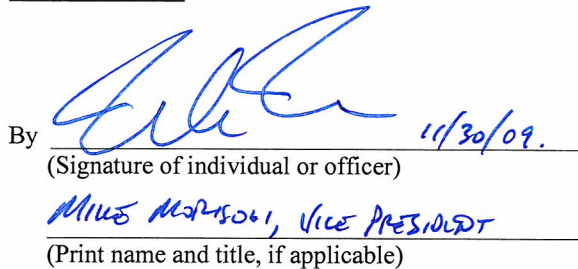 By 11/30/09.
(Signature of individual or officer)
MIKE MORISOLI, VICE PRESIDENT
(Print name and title, if applicable)